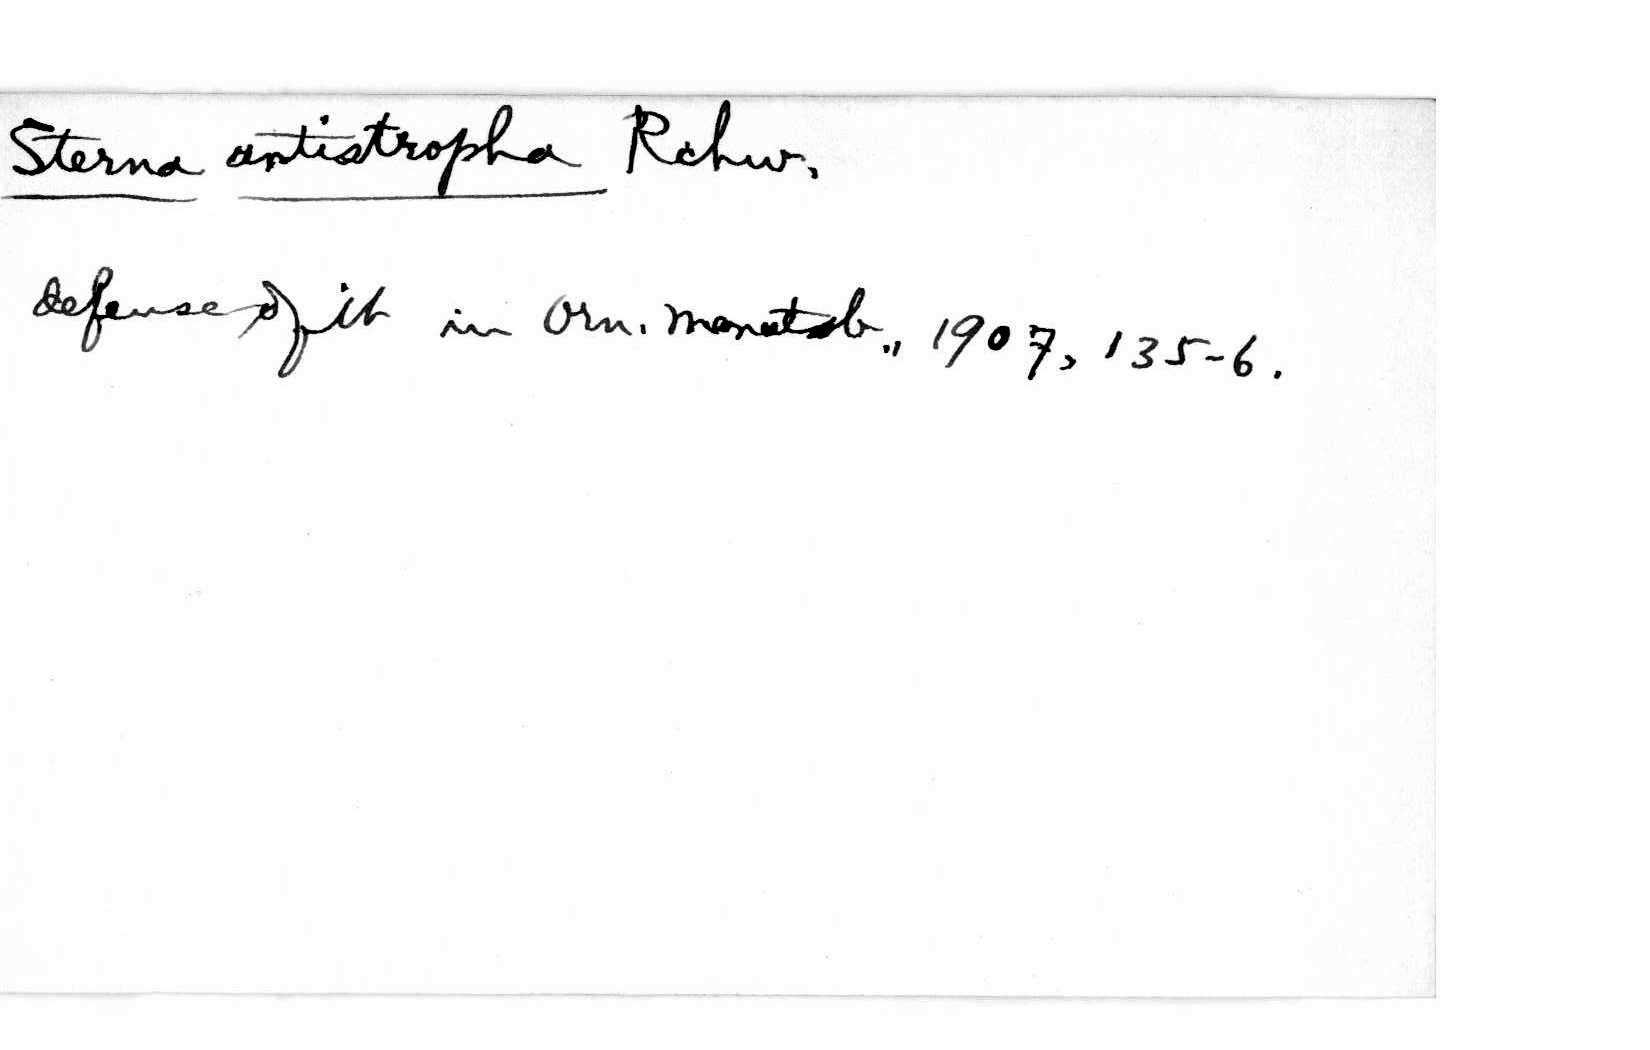 Sterna antistropha Rchw.
defense of it in Orn. Monatsb., 1907, 135-6.